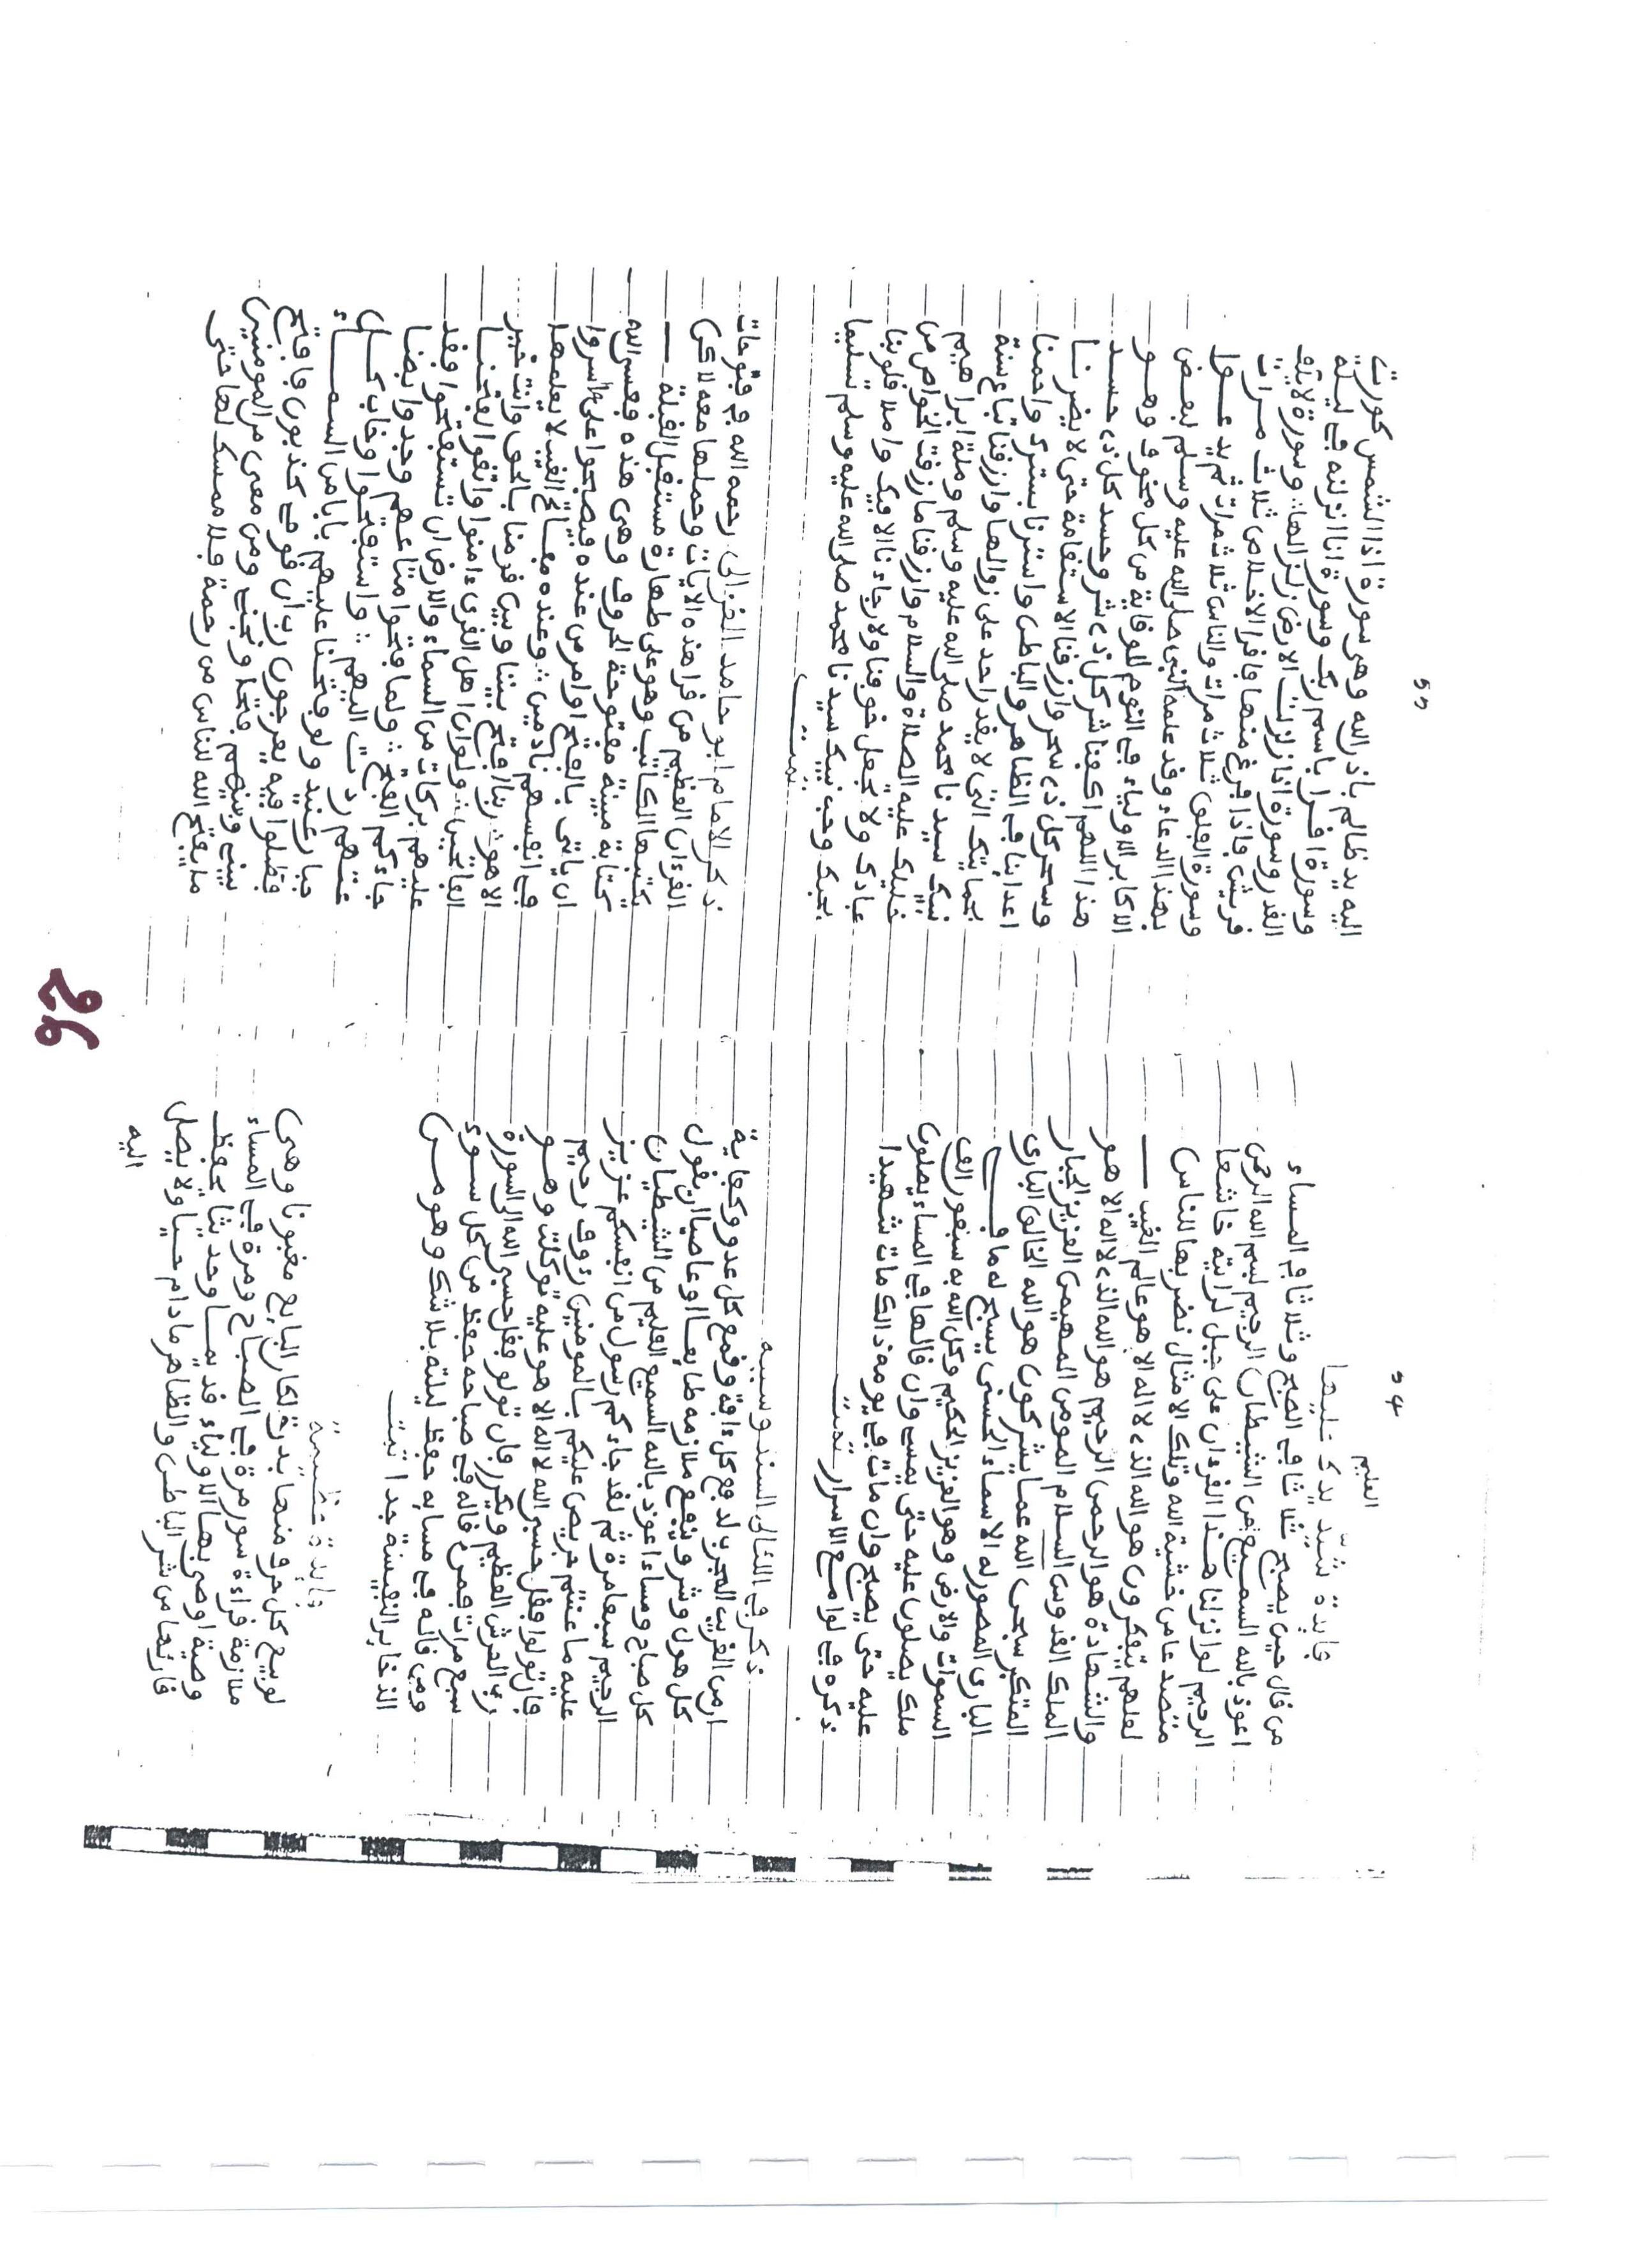 54
العليم
فايدة شد يدك عليها
من قال حين يصبح ثلاثا في الصبح وثلاثا في المساء
اعوذ بالله السميع من الشيطان الرجيم بسم الله الرحمن
الرحيم لو انزلنا هذا القرءان على جبل لرايته خاشعا
متصدعا من خشية الله وتلك الامثال نضربها للناس
لعلهم يتفكرون هو الله الذى لا اله الا هو عالم الغيب
والشهادة هو الرحمن الرحيم هو الله الذى لا اله الا هو
الملك القدوس السلام المومن المهيمن العزيز الجبار
المتكبر سبحن الله عما يشركون هو الله الخالق البارى
البارى المصور له الاسماء الحسنى يسبح له ما في
السموات والارض وهو العزيز الحكيم وكل الله به سبعون الف
ملك يصلون عليه حتى يمسي وان قالها في المساء يصلون
عليه حتى يصبح وان مات في يومه ذالك مات شهيدا
ذكره في لوامع الاسرار تمت
ذكر في اللئالى السندوسيه
ان من الغريب المجرب لدفع كل ءافة وقمع كل عدو وكفاية
كل هول وشر وينفع ملازمه طايعا او عاصيا ان يقول
كل صباح ومساء اعوذ بالله السميع العليم من الشيطان
الرجيم سبعا مرة ثم لقد جاءكم رسول من انفسكم عزيز
عليه ما عنتم حريص عليكم بالمومنين رءوف رحيم
فان تولوا فقل حسبي الله لا اله الا هو عليه توكلت وهو
رب العرش العظيم ويكرر فان تولو فقل حسبي الله الى السورة
سبع مرات فمن قاله في صباحه حفظ من كل سوء
ومن قاله في مسايه حفظ ليلته بلا شك وهو من
الذخاير النفيسة جدا تمت
فايدة عظيمة
لو بيع كل حر ومنها بدرة لكان البايع مغبونا وهى
ملازمة قراءة سور مرة في الصباح ومرة في المساء
وصية اوصى بها الاولياء قديما وحديثا يحفظ
قارئها من شر الباطن والظاهر ما دام حيا ولا يصل
اليه
55
اليه يد ظالم باذن الله وهى سورة اذا الشمس كورت
وسورة اقرا باسم ربك وسورة انا انزلنه في ليلة
القدر وسورة اذا زلزلت الارض زلزالها وسورة لايلف
قريش فاذا فرغ منها فاقرا الاخلاص ثلاث مرات
وسورة الفلق ثلاث مرات والناس ثلاث مرات ثم يدعوا
بهذا الدعاء وقد علمه النبي صلى الله عليه وسلم لبعض
الاكابر الاولياء في النوم للوقاية من كل مخوف وهو
هذا اللهم اكفنا شر كل ذى شر وحسد كل ذى حسد
وسحر كل ذى سحر وارزقنا الاستقامة حتى لا يضرنا
اعداينا في الظاهر والباطن واسترنا بسترك واحمنا
بحمايتك التى لا يقدر احد على زوالها وارزقنا اتباع سنة
نبيك سيدنا محمد صلى الله عليه وسلم وملة ابراهيم
خليلك عليه الصلاة والسلام وارزقنا ما رزقت الخواص من
عبادك ولا تجعل خوفنا ولا رجاءنا الا فيك واملا قلوبنا
بحبك وحب نبيك سيدنا محمد صلى الله عليه وسلم تسليما
تمت
ذكر الامام ابو حامد الغزالى رحمه الله في فتوحات
القرءان العظيم من قرا هذه الايات وحملها معه لاكن
يكتبها الكاتب وهو على طهارة مستقبل القبلة
كتابة مبينة مفتوحة الحروف وهى هذه فعسى الله
ان ياتى بالفتح او امر من عنده فيصبحوا على ما اسروا
في انفسهم نادمين وعنده مفاتح الغيب لا يعلمها
الا هو ربنا افتح بيننا وبين قومنا بالحق وانت خير
الفاتحين ولو ان اهل القرى ءامنوا واتقوا لفتحنا
عليهم بركات من السماء والارض ان تستفتحوا فقد
جاءكم الفتح ولما فتحوا متاعهم وجدوا بضا
عتهم ردت اليهم واستفتحوا وخاب كل
جبار عنيد ولو فتحنا عليهم بابا من السماء
فظلوا فيه يعرجون رب ان قومي كذبون فافتح
بيني وبينهم فتحا ونجني ومن معى من المومنين
ما يفتح الله للناس من رحمة فلا ممسك لها حتى
26